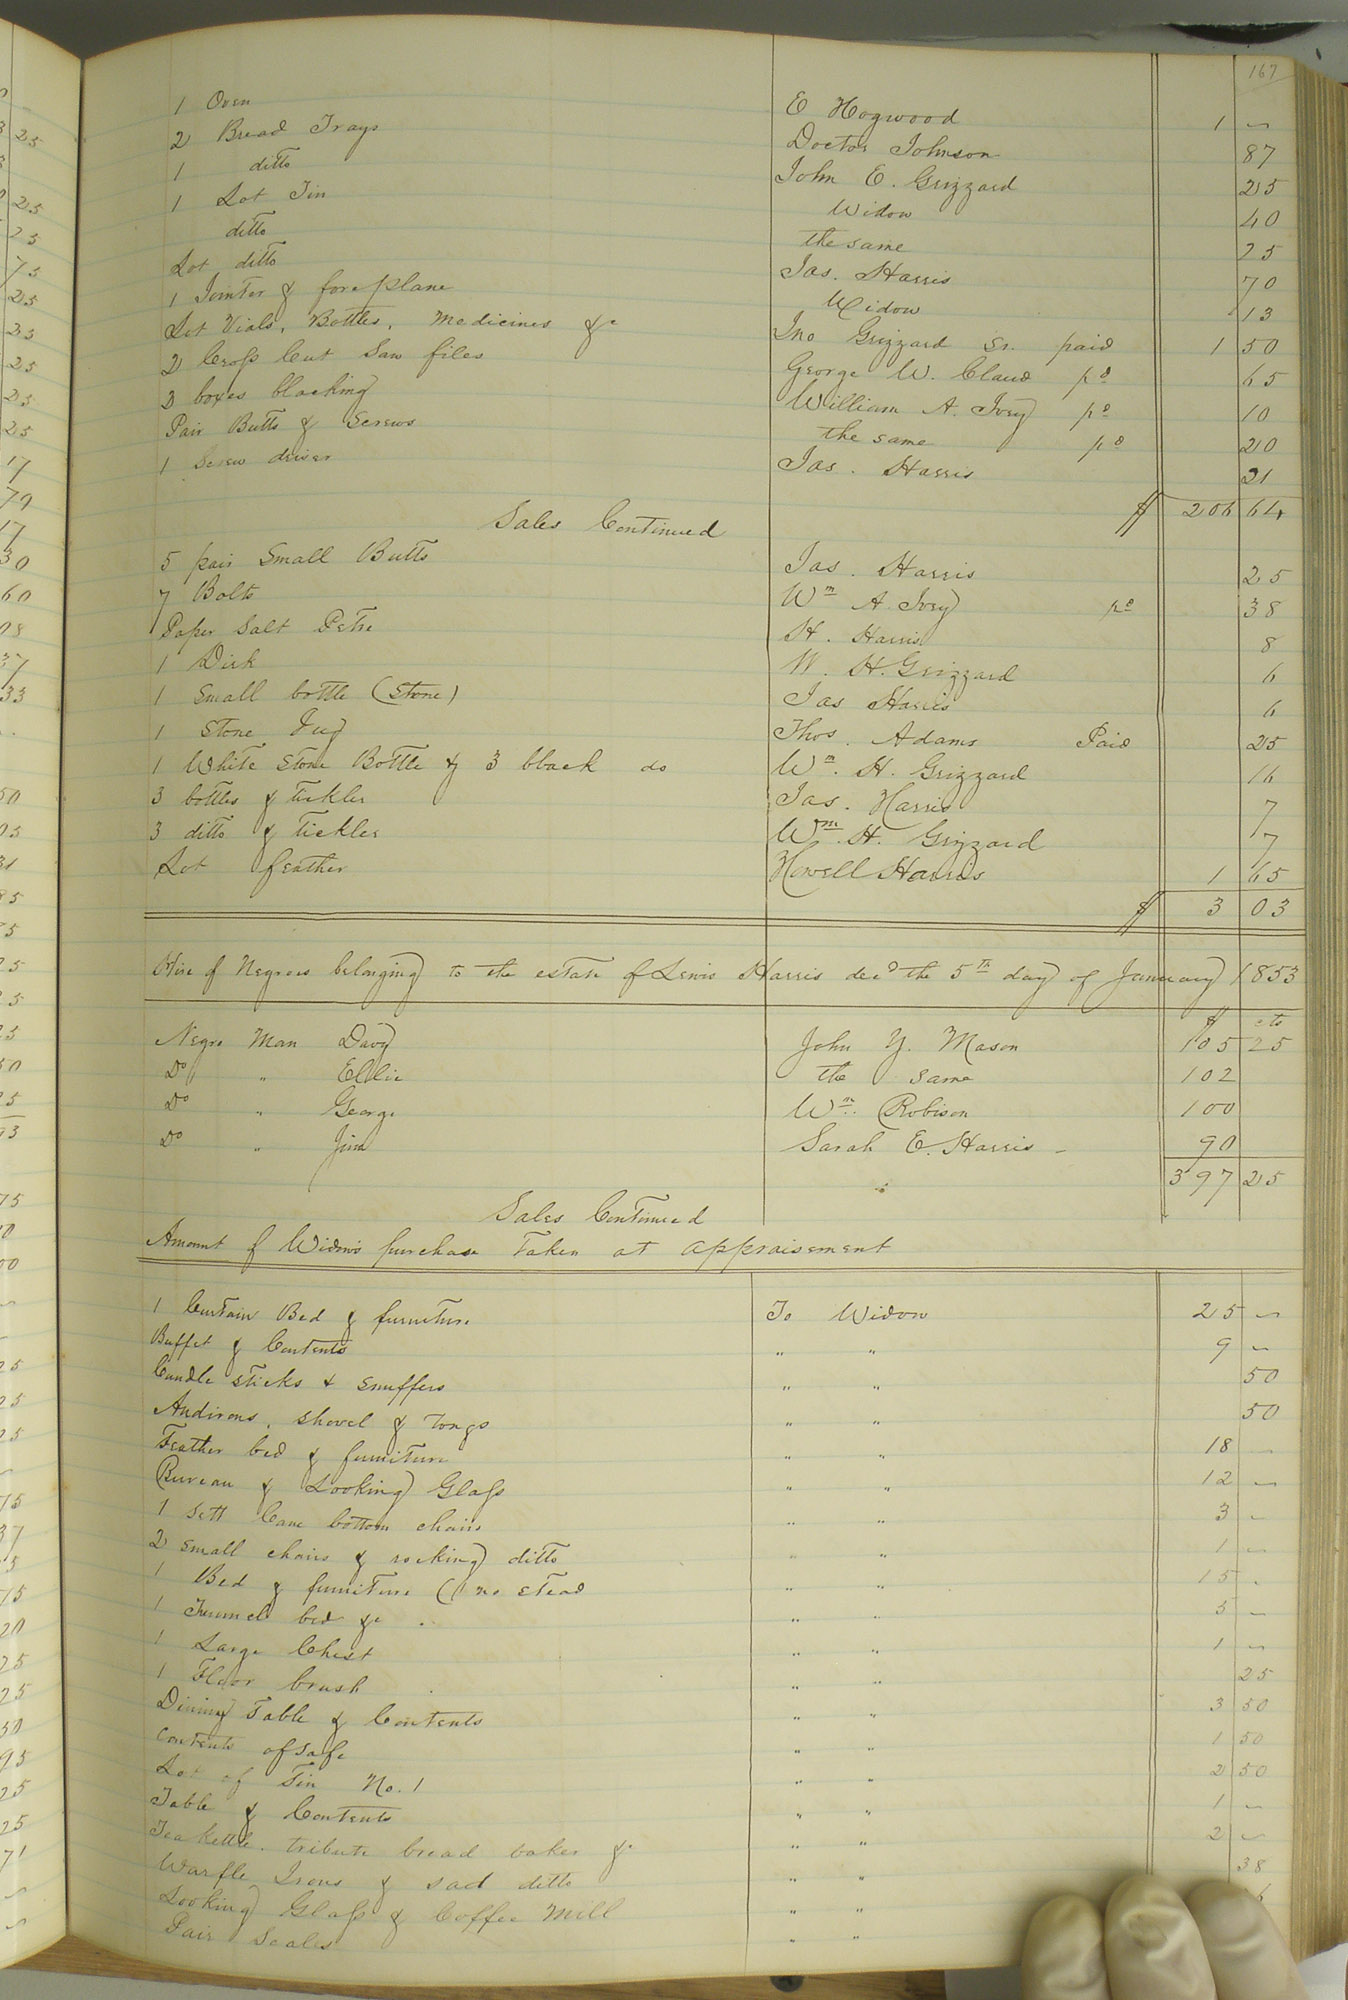 167
1 Oven E Hogwood 1 ~
2 Bread Trays Doctor Johnson 87
1 ditto John E. Grizzard 25
1 Lot Tin Widow 40
ditto the same 25
Lot ditto Jas. Harris 70
1 Jointer & foreplane Widow 13
Lot Vials, Bottles, Medicines &c Jno Grizzard Sr. paid 1 50
2 Cross Cut Saw files George W. Claud pd 65
3 boxes blacking William A. Ivey pd 10
Pair Butts & Screws the same pd 20
1 Screw driver Jas. Harris 21
$ 206 64
Sales Continued
5 pair Small Butts Jas. Harris 25
7 Bolts Wm A. Ivey pd 38
Paper Salt Petre H. Harris 8
1 Dirk W. H. Grizzard 6
1 Small bottle (Stone) Jas Harris 6
1 Stone Jug Thos. Adams Paid 25
1 White Stone Bottle & 3 black do Wm. H. Grizzard 16
3 bottles & tickler Jas. Harris 7
3 ditto & tickler Wm. H. Grizzard 7
Lot feather Howell Harris 1 65
$ 3 03
Hire of Negroes belonging to the estate of Lewis Harris decd the 5th day of January 1853
$ cts
Negro Man Davy John Y. Mason 105 25
Do " the same 102
Do " George Wm. Robison 100
Do " Jim Sarah E. Harris - 90
397 25
Sales Continued
Amount of Widow's purchase Taken at appraisement
1 Curtain Bed & furniture To Widow 25 ~
Buffet & Contents " " 9 ~
Candle sticks & snuffers " " 50
Andirons, shovel & Tongs " " 50
Feather bed & furniture " " 18 ~
Bureau & Looking Glass " " 12 ~
1 sett Cane bottom chairs " " 3 ~
2 small chairs & rocking ditto " " 1 ~
1 Bed & furniture (no stead " " 15
1 bed &c " " 5 ~
1 Large Chest " " 1 ~
1 Floor brush " " 25
Dining Table & Contents " " 3 50
Contents of safe " " 1 50
Lot of Tin No. 1 " " 2 50
Table & Contents " " 1 ~
Teakettle. bread baker &c " " 2 ~
Warfle Irons & sad ditto " " 38
Looking Glass & Coffee Mill " "
Pair Scales " "